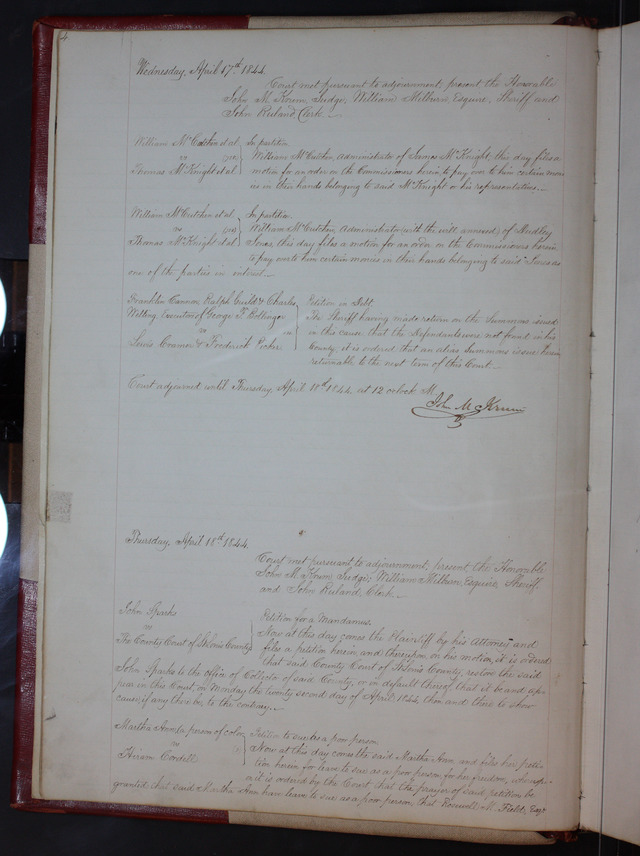 Wednesday, April 17th 1844.
Court met pursuant to adjournment, present the Honorable
John M. Krum, Judge, William Milburn Esquire, Sheriff and
John Ruland Clerk.
William McCutchen et al. In partition.
vs William McCutchen, Administrator of Thomas McKnight, this day files a
Thomas McKnight et al motion for an order on the Commissioners herein to pay over to him certain mon-
ies in their hands belonging to said McKnight or his representatives.
William McCutchen et al. In partition.
vs William McCutchen, Administrator (with the will annexed) of Dudley
Thomas McKnight et al Jones, this day files a motion for an order on the Commissioners herein
to pay over to him certain monies in their hands belonging to said Jones as
one of the parties in interest.
Franklin Cannon, Ralph Guild & Charles Petition in Debt.
Welling, Executors of George F. Bollinger The Sheriff having made return on the Summons issued
vs in the cause that the Defendants were not found in his
Lewis Cramer & Frederick County, it is ordered that an alias Summons issue herein
returnable to the next term of this Court.
Court adjourned until Thursday, April 18th 1844, at 12 oclock M.
John M. Krum
Thursday, April 18th 1844.
Court met pursuant to adjournment, present the Honorable
John M. Krum Judge; William Milburn, Esquire, Sheriff
and John Ruland, Clerk.
John Sparks Petition for a Mandamus.
vs Now at this day comes the Plaintiff by his Attorney and
The County Court of St Louis County files a petition herein, and thereupon, on his motion, it is ordered
that said County Court of St Louis County, restore the said
John Sparks to the office of Collector of said County, or in default thereof that it be and ap-
pear in this Court, on Monday the twenty second day of April, 1844, then and there to show
cause, if any there be, to the contrary.
Martha Ann a person of color Petition to sue as a poor person
vs Now at this day comes the said Martha Ann and files her peti-
Hiram Cordell tion herein for leave to sue as a poor person for her freedom, whereup-
on it is ordered by the Court that the prayer of said petition be
granted that said Martha Ann have leave to sue as a poor person, that Roswell M. Field, Esqr